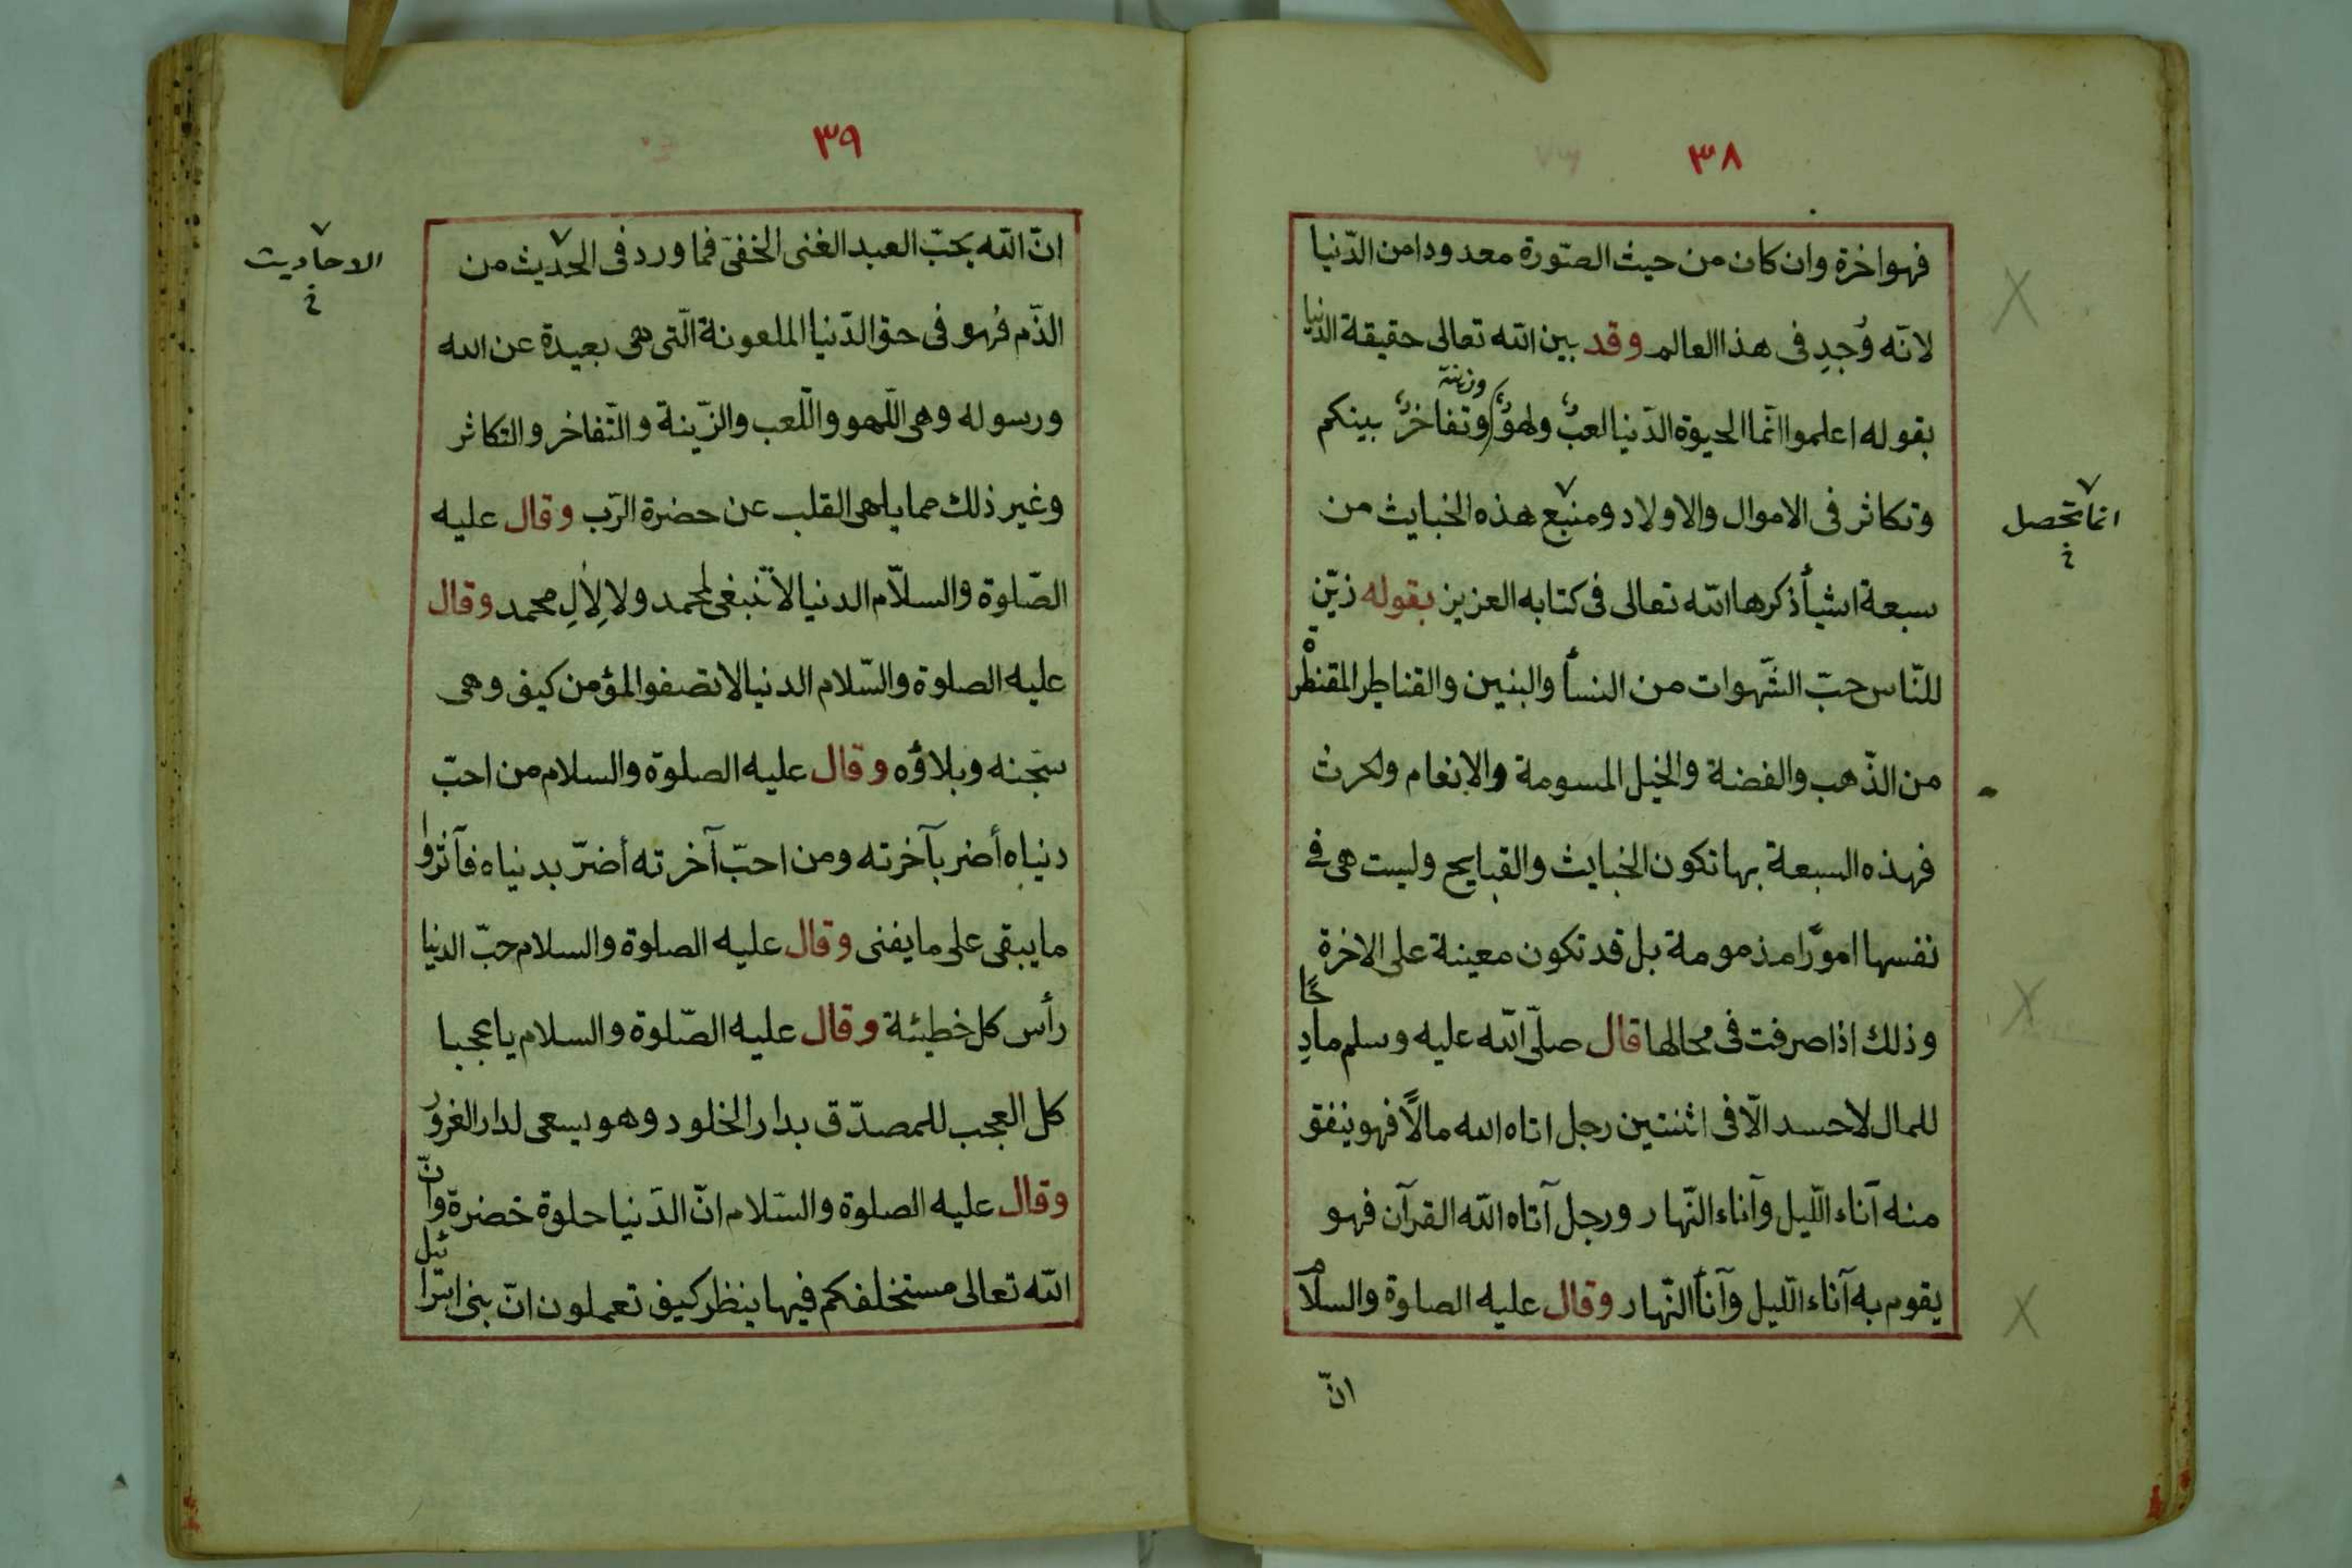 ٣٨
فهو اخرة وان كان من حيث الصّورة معدودا من الدّنيا
لانّه وُجِدِ فى هذا العالم وقد بين الله تعالى حقيقة الدّنيا
وزينة
بقوله اعلموا انّما الحيوة الدّنيا لعبٌ ولهوٌ وتفاخرٌ بينكم
وتكاثر فى الاموال والاولاد ومنبع هذه الخبايث من
انما تحصل
خ
سبعة اشيأ ذكرها الله تعالى فى كتابه العزيز بقوله زيّن
للنّاس حبّ الشّهوات من النسأ والبنين والقناطير المقنطرة
من الذّهب والفضة والخيل المسومة والانعام ولحرث
فهذه السبعة بها تكون الخبايث والقبايح وليست هى فى
نفسها امورًا مذمومة بل قد تكون معينة على الاخرة
وذلك اذا صرفت فى محالها قال صلّى الله عليه وسلم مادحًا
للمال لا حسد الّا فى اثنتين رجل اتاه الله مالًا فهو ينفق
منه آناء اللّيل وآناء النّهار ورجل آتاه الله القرآن فهو
يقوم به آناء اللّيل وآنأ النّهار وقال عليه الصلوة والسلام
انّ
٣٩
انّ الله يحبّ العبد الغنى الخفىّ فما ورد فى الحديث من
الاحاديث
خ
الذّم فهو فى حق الدّنيا الملعونة الّتى هى بعيدة عن الله
ورسوله وهى اللّهو واللّعب والزّينة والتّفاخر والتكاثر
وغير ذلك مما يلهى القلب عن حضرة الرّب وقال عليه
الصّلوة والسلاّم الدنيا لا تنبغى لمحمد ولا لِاٰلِ محمد وقال
عليه الصلوة والسّلام الدنيا لا تصفو المؤمن كيف وهى
سجنه وبلاؤه وقال عليه الصلوة والسلام من احبّ
دنياه أضر بآخرته ومن احبّ آخرته أضرّ بدنياه فآثروا
ما يبقى على ما يفنى وقال عليه الصلوة والسلام حبّ الدنيا
رأس كل خطيئة وقال عليه الصّلوة والسلام يا عجبا
كل العجب للمصدّق بدار الخلود وهو يسعى لدار الغرور
وقال عليه الصلوة والسّلام انّ الدّنيا حلوة خضرة وانّ
الله تعالى مستخلفكم فيها ينظر كيف تعملون انّ بنى اسرائيل